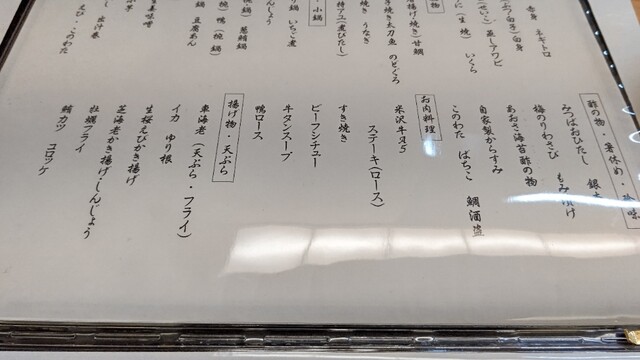 酢の物・箸休め・珍味
みつばおひたし　銀
梅のりわさび　もみ漬け
あおさ海苔酢の物
自家製からすみ
このわた　ばちこ　鯛酒盗
お肉料理
米沢牛A5
ステーキ(ロース)
すき焼き
ビーフシチュー
牛タンスープ
鴨ロース
揚げ物・天ぷら
車海老（天ぷら・フライ）
イカ　ゆり根
生桜えびかき揚げ
芝海老かき揚げ・しんじょう
牡蠣フライ
鯖カツ　コロッケ
赤身　ネギトロ
白身
蒸しアワビ
いくら
揚げ焼き）甘鯛
焼き太刀魚　のどぐろ
うなぎ
稚アユ（煮びたし）
小鍋
いちご煮
葱鮪鍋
鴨（椀、鍋）
豆腐あん
出汁巻
えび・このわた